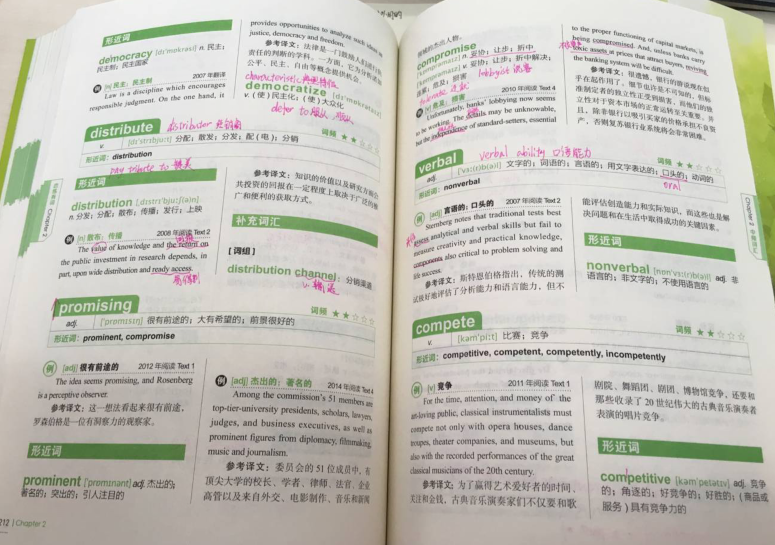 形近词
democracy [dɪˈmɒkrəsi] n. 民主；
民主制；民主国家
例 [n] 民主；民主制 2007 年翻译
Law is a discipline which encourages
responsible judgment. On the one hand, it
provides opportunities to analyze such ideas as
justice, democracy and freedom.
参考译文：法律是一门鼓励人们进行
责任的判断的学科。一方面，它为分析诸如
公平、民主、自由等概念提供机会。
democratize
v. (使) 民主化；(使) 大众化
defer to 服从
distribute distributor 经销商
v. [dɪˈstrɪbjuːt] 分配；散发；分发；配 ( 电 )；分销 词频 ★★
形近词：distribution
pay tribute to 赞美
形近词
distribution [ˌdɪstrɪˈbjuːʃ(ə)n]
n. 分发；分配；散布；传播；发行；上映
例 [n] 散布；传播 2008 年阅读 Text 2
The value of knowledge and the return on
the public investment in research depends, in
part, upon wide distribution and ready access.
易得到
参考译文：知识的价值以及研究方面公
共投资的回报在一定程度上取决于广泛的推
广和便利的获取方式。
补充词汇
[词组]
distribution channel：分销渠道
promising
adj. [ˈprɒmɪsɪŋ] 很有前途的；大有希望的；前景很好的 词频 ★★
形近词：prominent, compromise
例 [adj] 很有前途的 2012 年阅读 Text 1
The idea seems promising, and Rosenberg
is a perceptive observer.
参考译文：这一想法看起来很有前途，
罗森伯格是一位有洞察力的观察家。
形近词
prominent [ˈprɒmɪnənt] adj. 杰出的；
著名的；突出的；引人注目的
例 [adj] 杰出的；著名的 2014 年阅读 Text 4
Among the commission's 51 members are
top-tier-university presidents, scholars, lawyers,
judges, and business executives, as well as
prominent figures from diplomacy, filmmaking,
music and journalism.
参考译文：委员会的 51 位成员中，有
顶尖大学的校长、学者、律师、法官、企业
高管以及来自外交、电影制作、音乐和新闻
212 | Chapter 2
compromise
[ˈkɒmprəmaɪz] n. 妥协；让步；折中
v. 妥协；让步；折中解决；
lobbyist 说客
2010 年阅读 Text 4
Unfortunately, banks' lobbying now seems
to be working. The details may be unknowable,
but the independence of standard-setters, essential
to the proper functioning of capital markets, is
being compromised. And, unless banks carry
toxic assets at prices that attract buyers, reviving
the banking system will be difficult.
参考译文：很遗憾，银行的游说现在似
乎在起作用了。细节也许是不可知的，但标
准制定者的独立性正受到损害，而他们的独
立性对于资本市场的正常运转至关重要。并
且，除非银行以吸引买家的价格承担不良资
产，否则复苏银行业系统将会非常困难。
verbal verbal ability 口语能力
adj. [ˈvɜː(r)b(ə)l] 文字的；词语的；言语的；用文字表达的；口头的；动词的 词频 ★★
oral
形近词：nonverbal
例 [adj] 言语的；口头的 2007 年阅读 Text 2
Sternberg notes that traditional tests best
assess analytical and verbal skills but fail to
measure creativity and practical knowledge,
components also critical to problem solving and
life success.
参考译文：斯特恩伯格指出，传统的测
试很好地评估了分析能力和语言能力，但不
能评估创造能力和实际知识，而这些也是解
决问题和在生活中取得成功的关键因素。
形近词
nonverbal [nɒnˈvɜː(r)b(ə)l] adj. 非
语言的；非文字的；不使用语言的
compete
v. [kəmˈpiːt] 比赛；竞争 词频 ★★
形近词：competitive, competent, competently, incompetently
例 [v] 竞争 2011 年阅读 Text 1
For the time, attention, and money of the
art-loving public, classical instrumentalists must
compete not only with opera houses, dance
troupes, theater companies, and museums, but
also with the recorded performances of the great
classical musicians of the 20th century.
参考译文：为了赢得艺术爱好者的时间、
关注和金钱，古典音乐演奏家们不仅要和歌
剧院、舞蹈团、剧团、博物馆竞争，还要和
那些收录了 20 世纪伟大的古典音乐演奏者
表演的唱片竞争。
形近词
competitive [kəmˈpetətɪv] adj. 竞争
的；角逐的；好竞争的；好胜的；( 商品或
服务 ) 具有竞争力的
Chapter 2